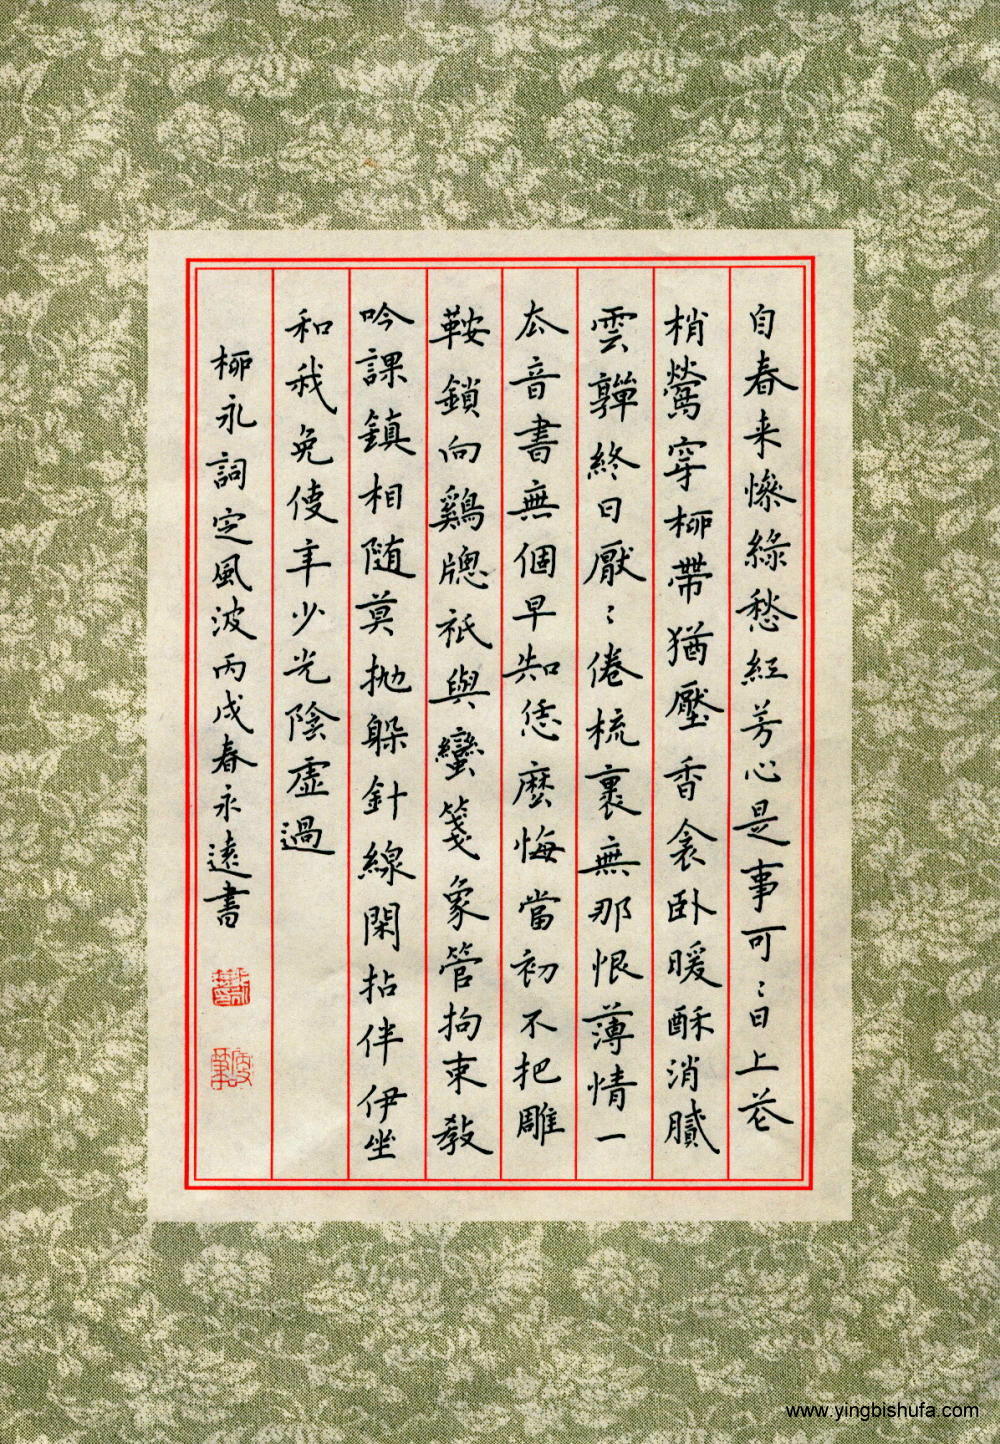 自春来慘綠愁紅芳心是事可〻日上花
梢鶯穿柳帶猶壓香衾卧暖酥消膩
雲嚲終日厭〻倦梳裹無那恨薄情一
去音書無個早知恁麼悔當初不把雕
鞍鎖向鷄牕祇與蠻箋象管拘束教
吟課鎮相随莫抛躲針線閑拈伴伊坐
和我免使年少光陰虛過
柳永詞定風波丙戌春永遠書
www.yingbishufa.com